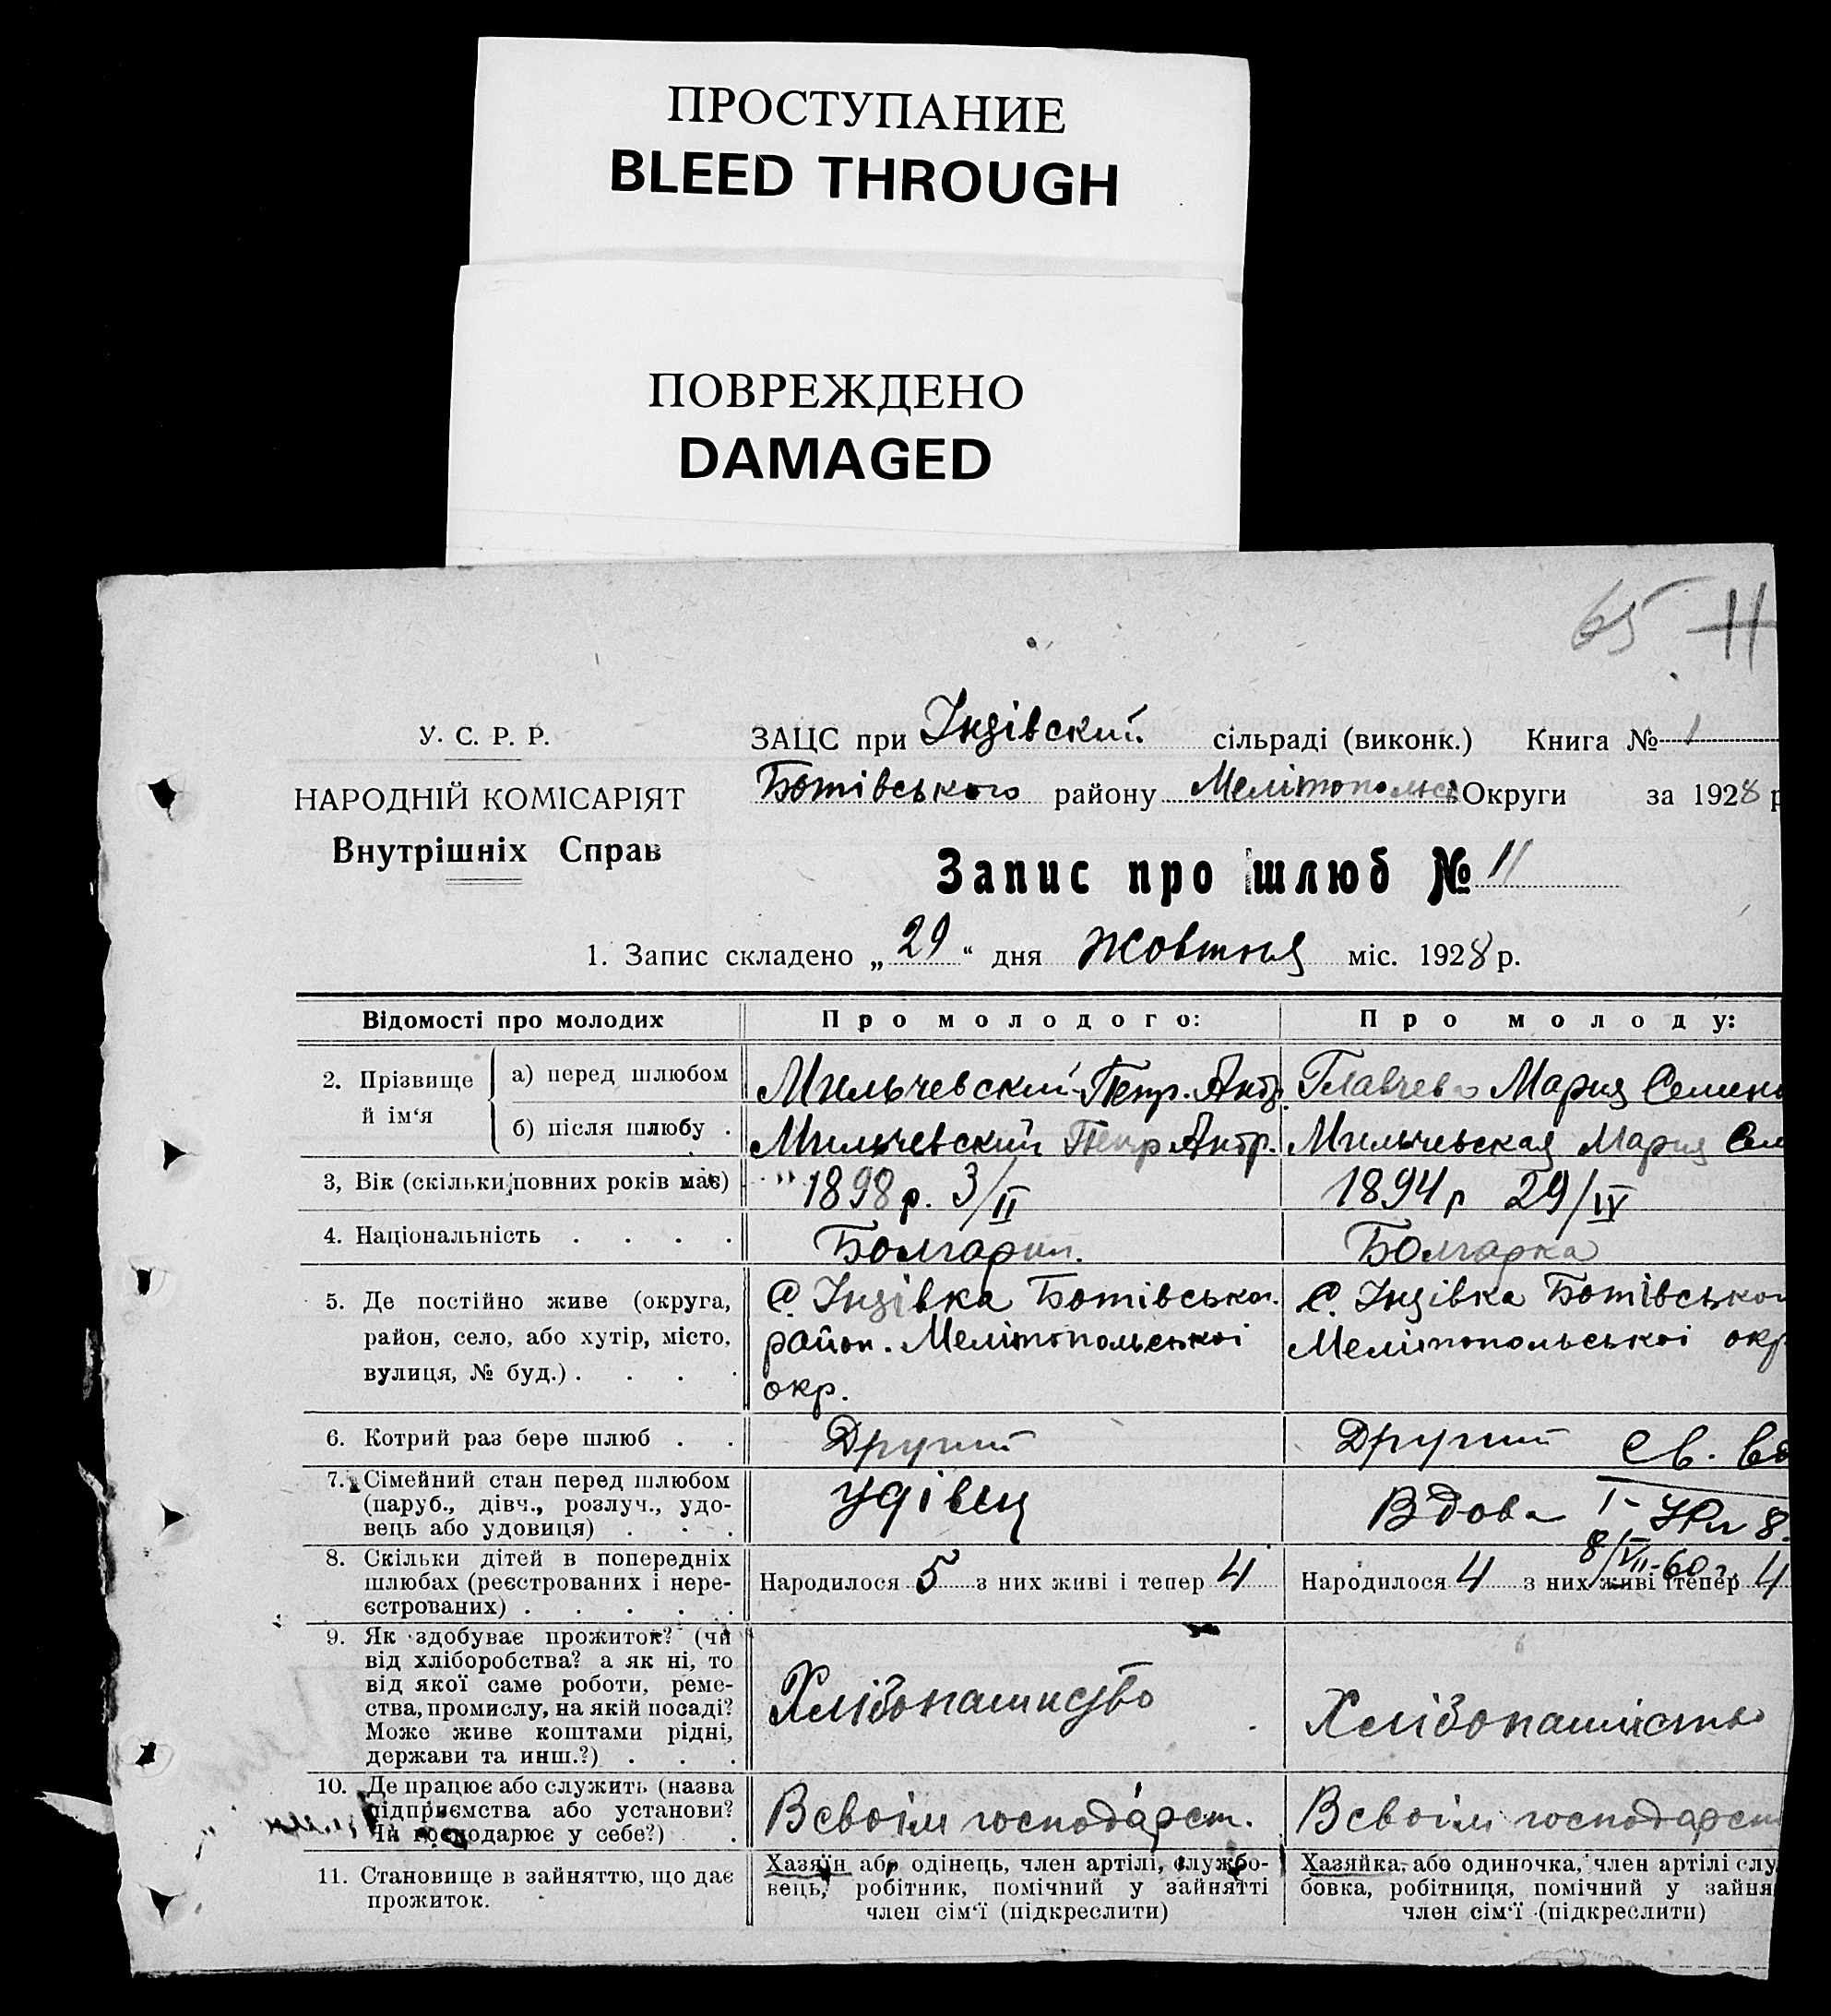 ПРОСТУПАНИЕ
BLEED THROUGH
ПОВРЕЖДЕНО
DAMAGED
65 11
У. С. Р. Р.
НАРОДНІЙ КОМІСАРІЯТ
Внутрішніх Справ
ЗАЦС при Інзівский сільраді (виконк.) Книга № 1
Ботівського району Мелітопольсь Округи за 1928 р
Запис про шлюб № 11
1. Запис складено „29“ дня жовтня міс. 1928 р.
Відомості про молодих Про молодого: Про молоду:
2. Прізвище й ім‘я
а) перед шлюбом Мильчевский Петр. Андр. Главчева Мария Семено
б) після шлюбу . Мильчевский Петр Андр. Мильчевская Мария Сем
3, Вік (скільки повних років має) 1898 р. 3/II 1894 р 29/IV
4. Національність . . . . Болгарин. Болгарка
5. Де постійно живе (округа,
район, село, або хутір, місто,
вулиця, № буд.) . . . .
С. Інзівка Ботівськог.
район. Мелітопольської
окр.
С. Інзівка Ботівськог
Мелітопольської окр
6. Котрий раз бере шлюб . . Другий Другий
Св. вд
7. Сімейний стан перед шлюбом
(паруб., дівч., розлуч., удо-
вець або удовиця) . . .
Удівец Вдова
8/VII-60 г.
8. Скільки дітей в попередніх
шлюбах (реєстрованих і нере-
єстрованих) . . . . .
Народилося 5 з них живі і тепер 4
Народилося 4 з них живі і тепер 4
9. Як здобуває прожиток? (чи
від хліборобства? а як ні, то
від якої саме роботи, реме-
ства, промислу, на якій посаді?
Може живе коштами рідні,
держави та инш.?) . . .
Хлібопашиство
Хлібопашиство
10. Де працює або служить (назва
підприємства або установи?
Чи господарює у себе?) .
В своїм господарст.
В своїм господарст
11. Становище в зайняттю, що дає
прожиток.
Хазяїн або одінець, член артілі, службо-
вець, робітник, помічний у зайнятті
член сім‘ї (підкреслити)
Хазяйка, або одиночка, член артілі слу
бовка, робітниця, помічний у зайня
член сім‘ї (підкреслити)